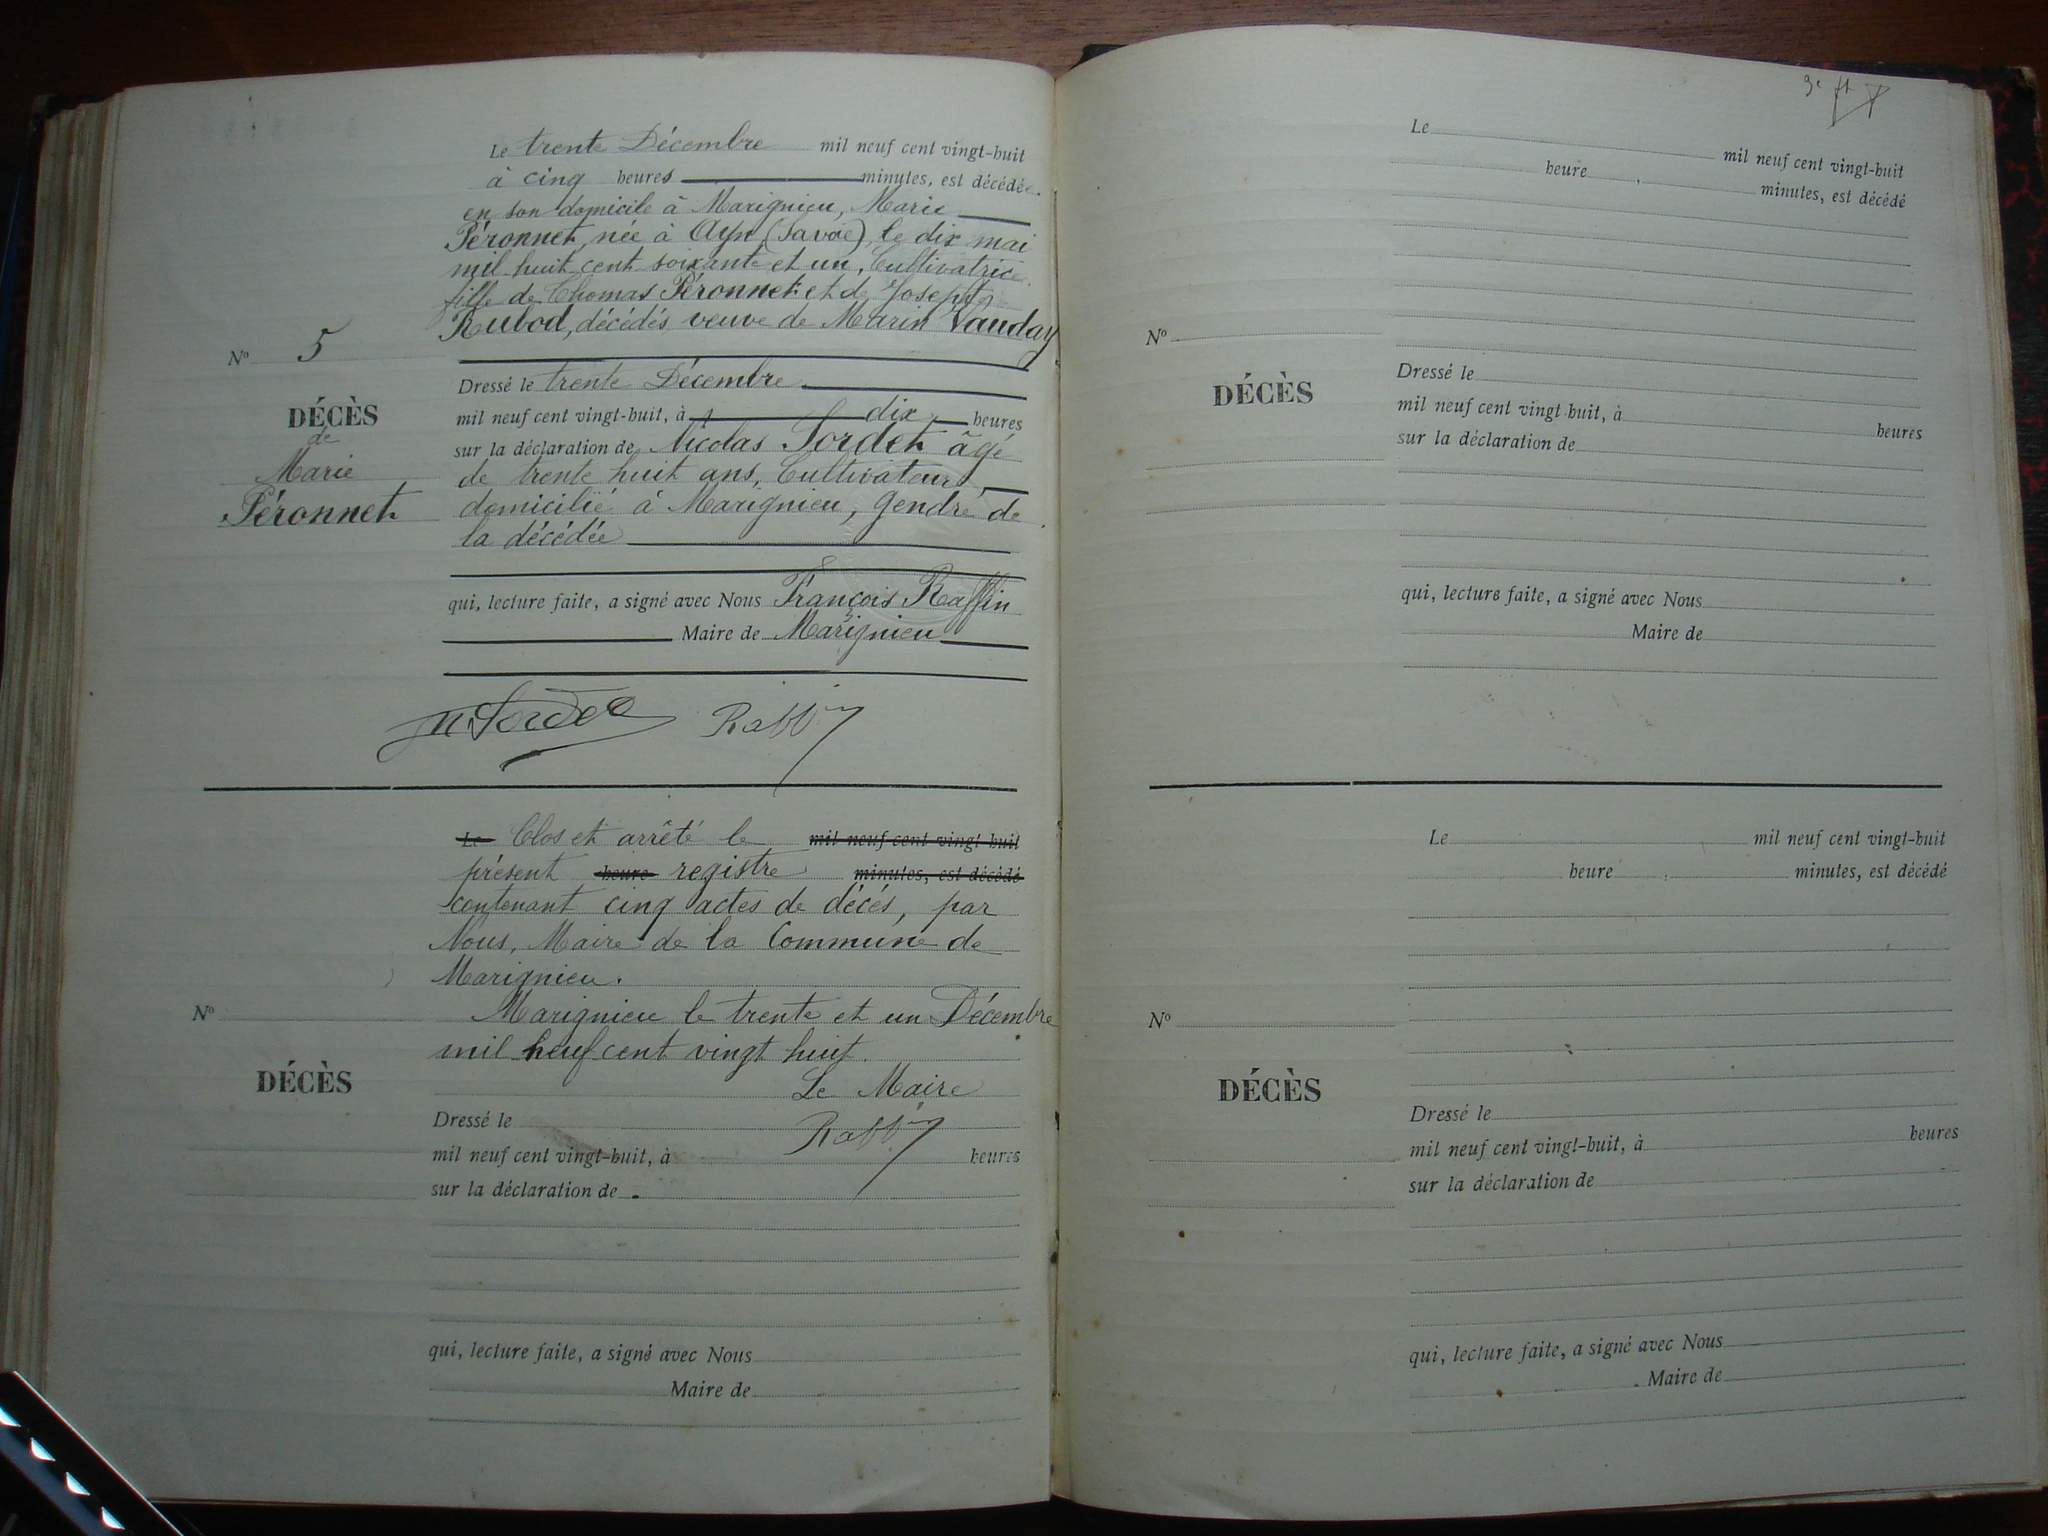 Le trente Décembre mil neuf cent vingt-huit
à cinq heures minutes, est décédée
en son domicile à Marignieu, Marie
Péronnet, née à Ayn (Savoie), le dix mai
mil huit cent soixante et un, Cultivatrice
fille de Thomas Péronnet et de Josephte
Rubod, décédés veuve de Marin Vauday
No 5
DÉCÈS
de
Marie
Péronnet
Dressé le trente Décembre
mil neuf cent vingt-huit, à dix heures
sur la déclaration de Nicolas Sordet âgé
de trente huit ans, Cultivateur
domicilié à Marignieu, gendre de
la décédée
qui, lecture faite, a signé avec Nous François Raffin
Maire de Marignieu
N. Sordet Raffin
Le Clos et arrêté le mil neuf cent vingt-huit
présent heure registre minutes, est décédé
contenant cinq actes de décès, par
Nous, Maire de la Commune de
Marignieu.
Marignieu le trente et un Décembre
mil neuf cent vingt huit.
Le Maire
Raffin
No
DÉCÈS
Dressé le
mil neuf cent vingt-huit, à heures
sur la déclaration de
qui, lecture faite, a signé avec Nous
Maire de
Le mil neuf cent vingt-huit
heure minutes, est décédé
No
DÉCÈS
Dressé le
mil neuf cent vingt-huit, à heures
sur la déclaration de
qui, lecture faite, a signé avec Nous
Maire de
Le mil neuf cent vingt-huit
heure minutes, est décédé
No
DÉCÈS
Dressé le
mil neuf cent vingt-huit, à heures
sur la déclaration de
qui, lecture faite, a signé avec Nous
Maire de